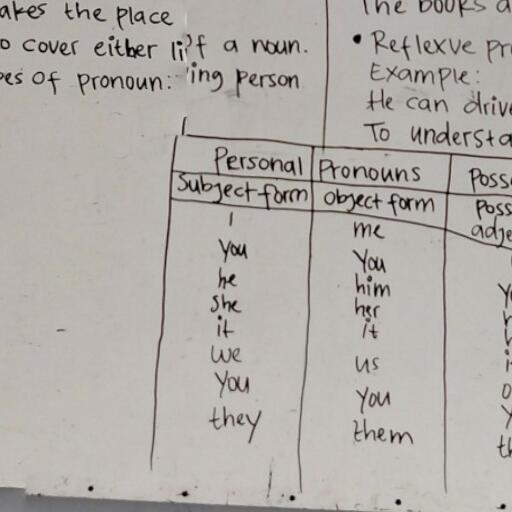 akes the place
o cover either li f a noun.
pes of pronoun: ing person
The books a
• Reflexve pr
Example:
He can drive
To understa
Personal Pronouns Poss
Subject form object form Poss
adje
I me
You You
he him
she her
it it
we us
You You
they them